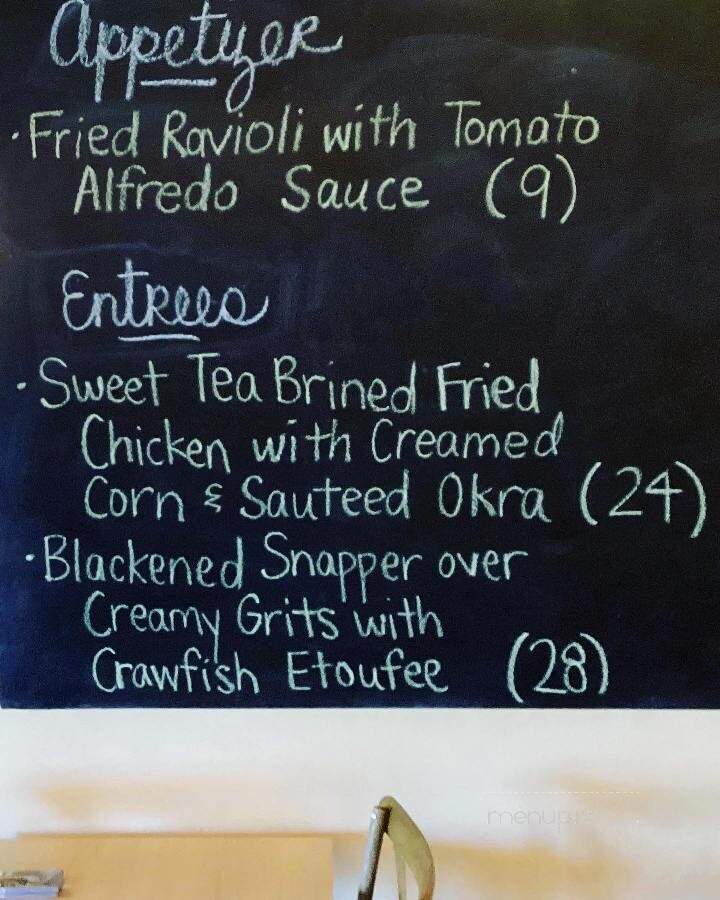 Appetyzer
· Fried Ravioli with Tomato
Alfredo Sauce (9)
Entrees
· Sweet Tea Brined Fried
Chicken with Creamed
Corn & Sauteed Okra (24)
· Blackened Snapper over
Creamy Grits with
Crawfish Etoufee (28)